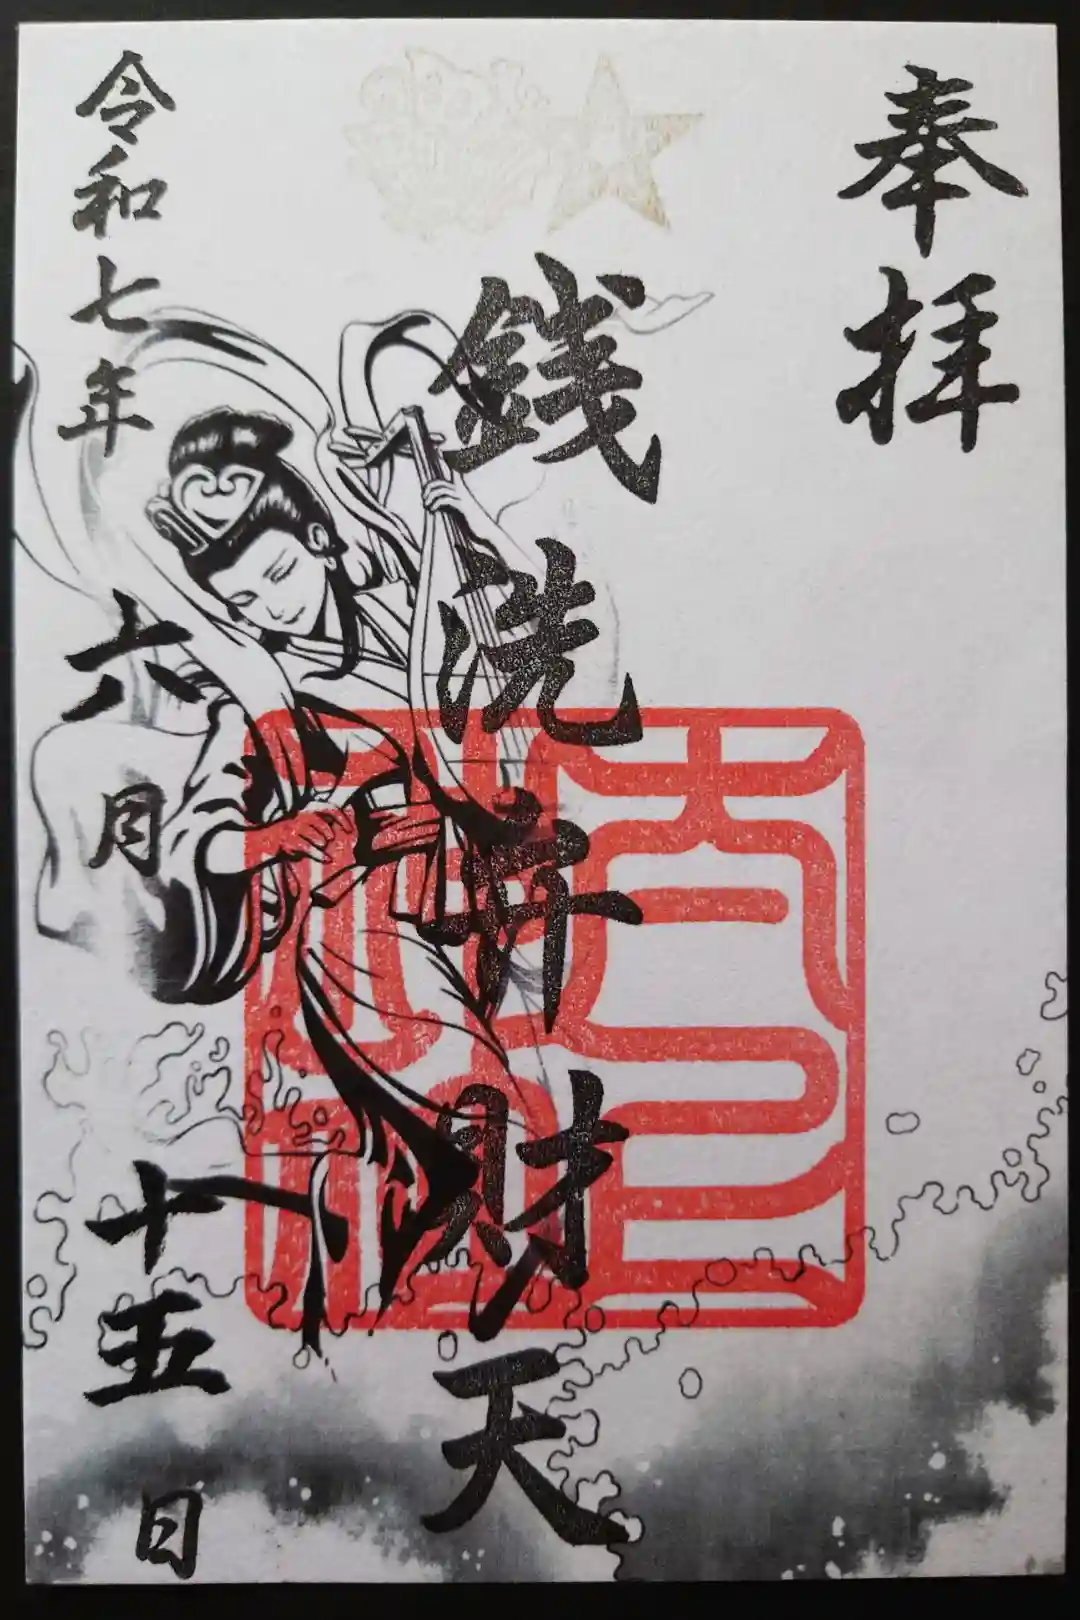 奉拝
銭洗弁財天
令和七年六月十五日